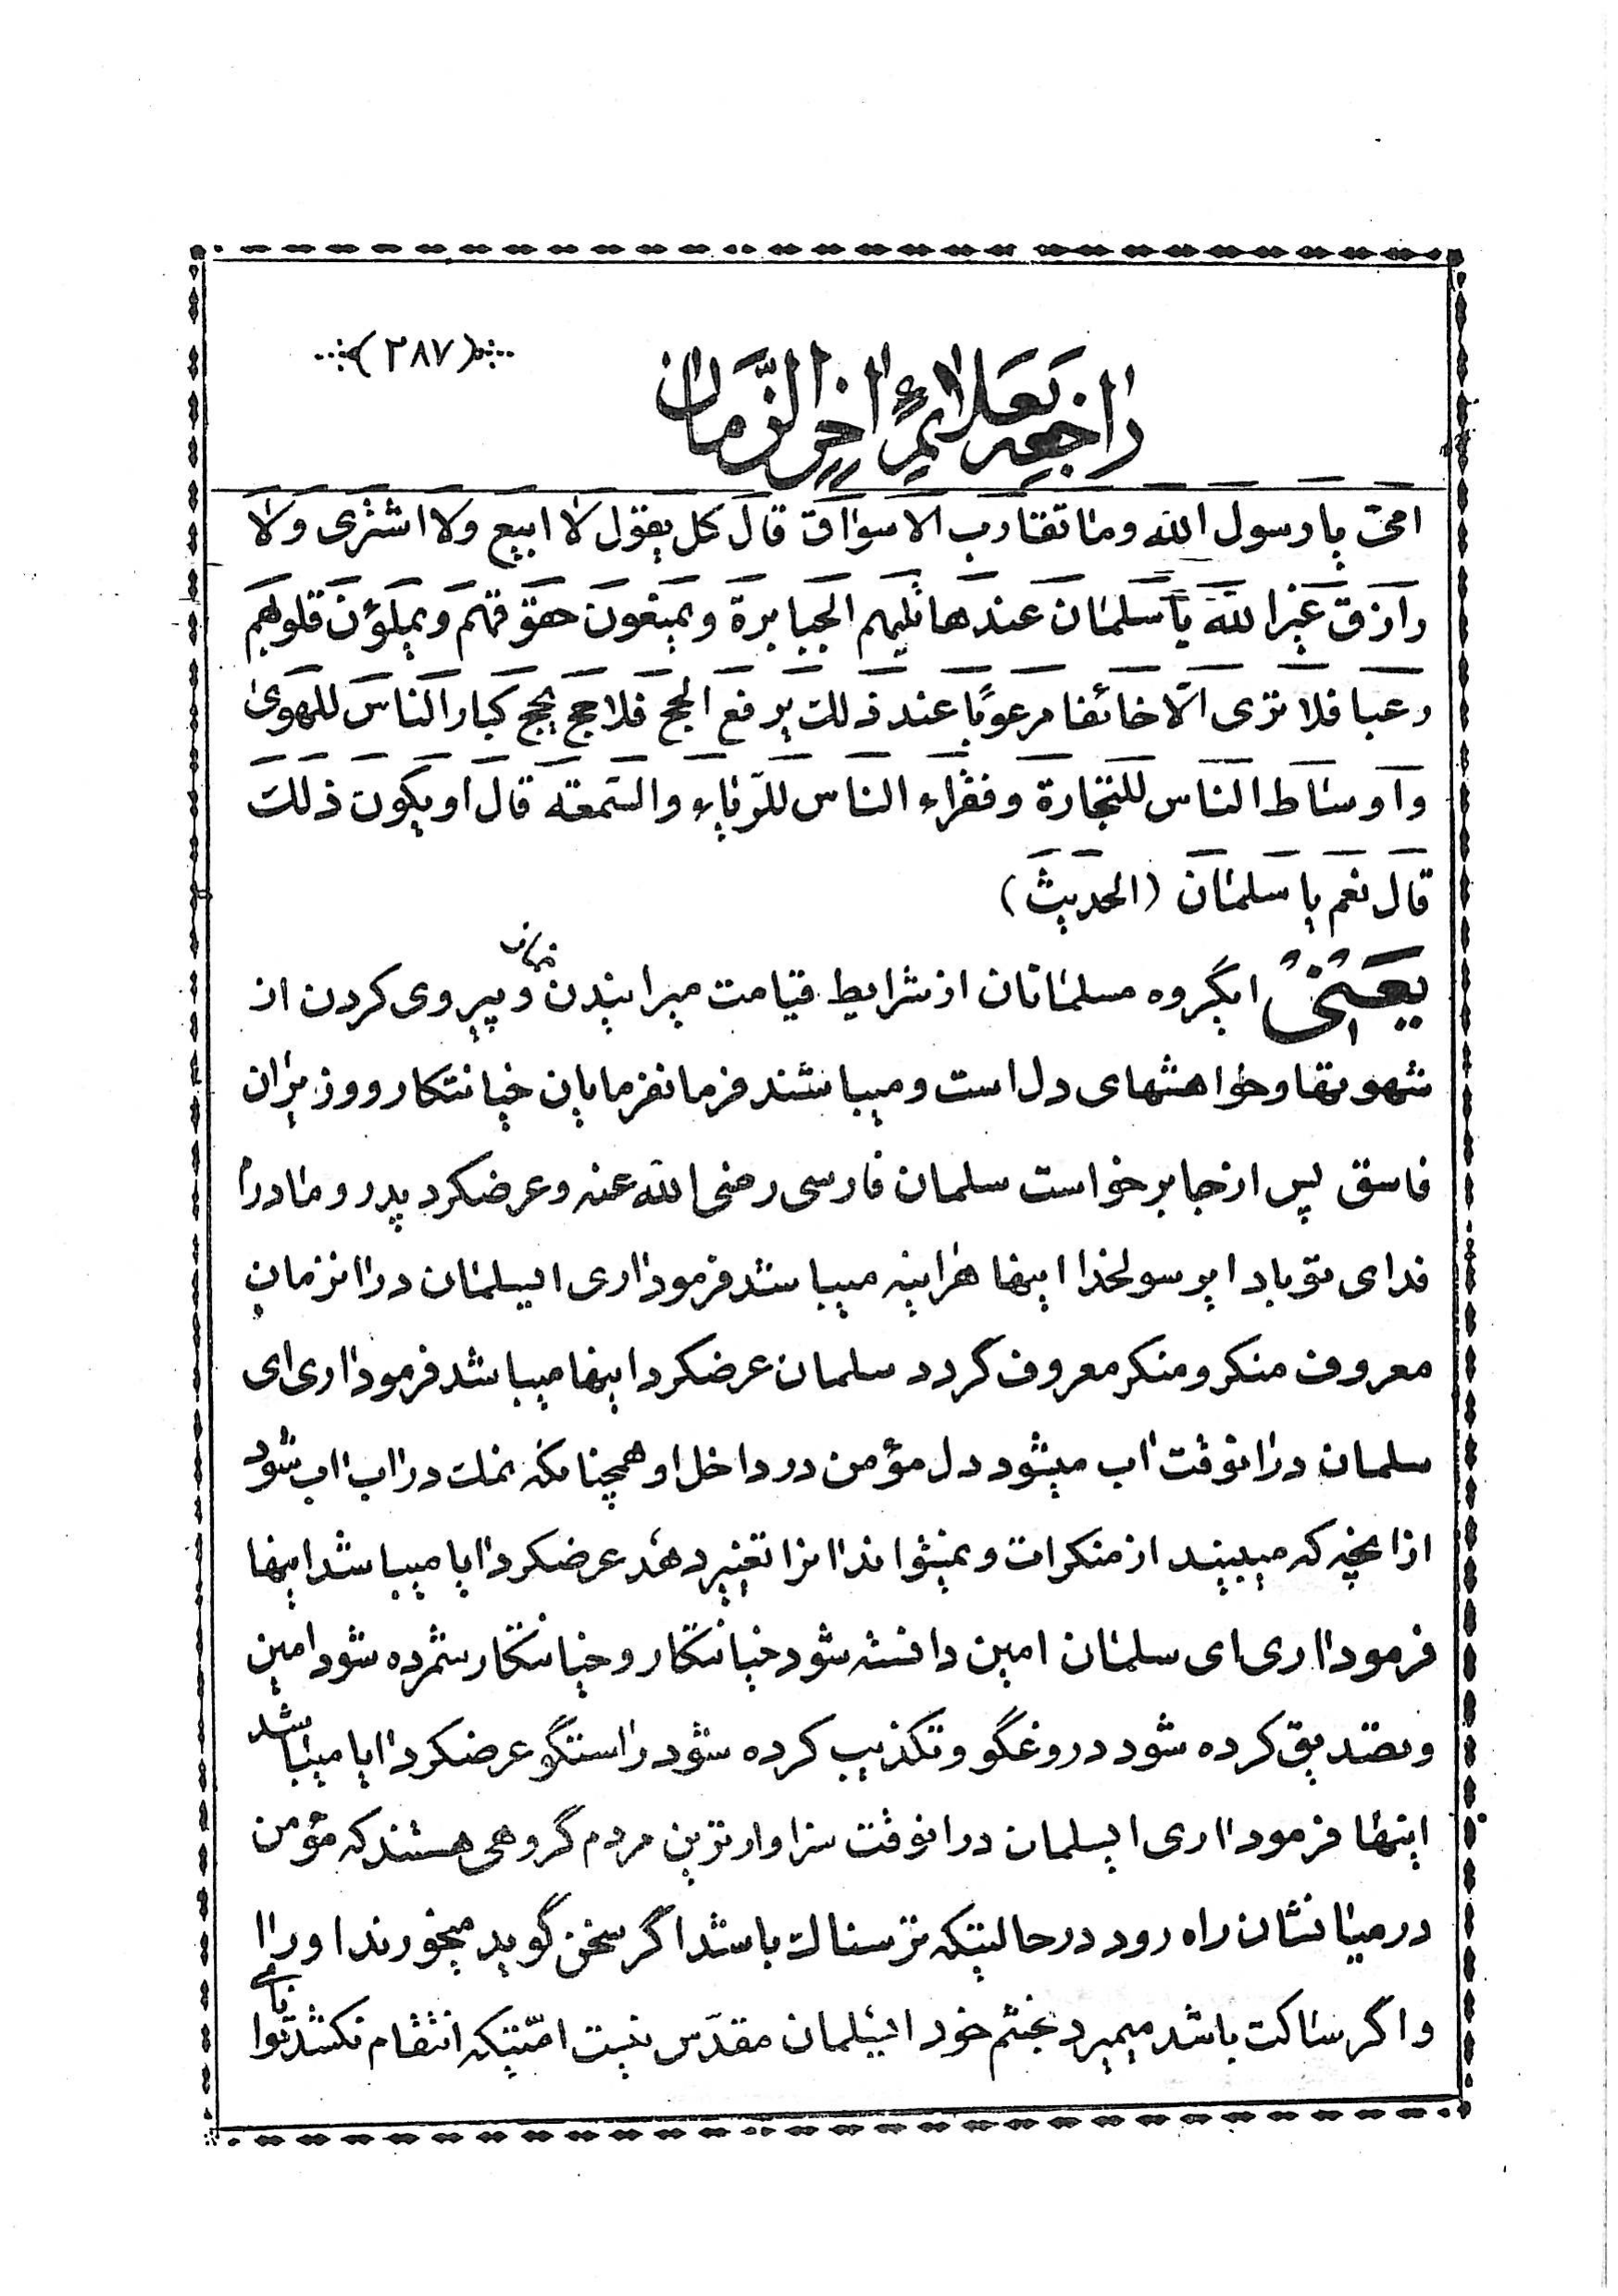 (۲۸۷)
راجعه بعلائم اخر الزمان
امی یا رسول الله وما تقارب الاسواق قال کل یقول لا ابیع ولا اشتری ولا
رازق غیر الله یا سلمان عندها تلیهم الجبابرة ویمنعون حقوقهم ویملؤن قلوبهم
رعبا فلا تری الّا خائفا مرعوبًا عند ذلک یرفع الحج فلا حج یحج کبار الناس للهوی
واوساط الناس للتجارة وفقراء الناس للرّیاء والسّمعة قال او یکون ذلک
قال نعم یا سلمان (الحدیث)
یعنی ایگروه مسلمانان از شرایط قیامت میرانیدن نماز و پیروی کردن از
شهوتها وخواهشهای دل است ومیباشند فرمانفرمایان خیانتکار ووزیران
فاسق پس از جا برخواست سلمان فارسی رضی الله عنه وعرضکرد پدر ومادرم
فدای تو باد ایرسولخدا اینها هراینه میباشد فرمود اری ایسلمان در انزمان
معروف منکر ومنکر معروف گردد سلمان عرضکرد اینها میباشد فرمود اری ای
سلمان در انوقت اب میشود دل مؤمن در داخل او همچنانکه نمک در اب اب شود
از انچه که میبیند از منکرات ونمیتواند انرا تغییر دهد عرضکرد ایا میباشد اینها
فرمود اری ای سلمان امین دانسته شود خیانتکار وخیانتکار شمرده شود امین
وتصدیق کرده شود دروغگو وتکذیب کرده شود راستگو عرضکرد ایا میباشد
اینها فرمود اری ایسلمان در انوقت سزاوارترین مردم گروهی هستند که مؤمن
در میانشان راه رود در حالتیکه ترسناک باشد اگر سخن گوید میخورند او را
واگر ساکت باشد میمیرد بخشم خود ایسلمان مقدّس نیست امّتیکه انتقام نکشد